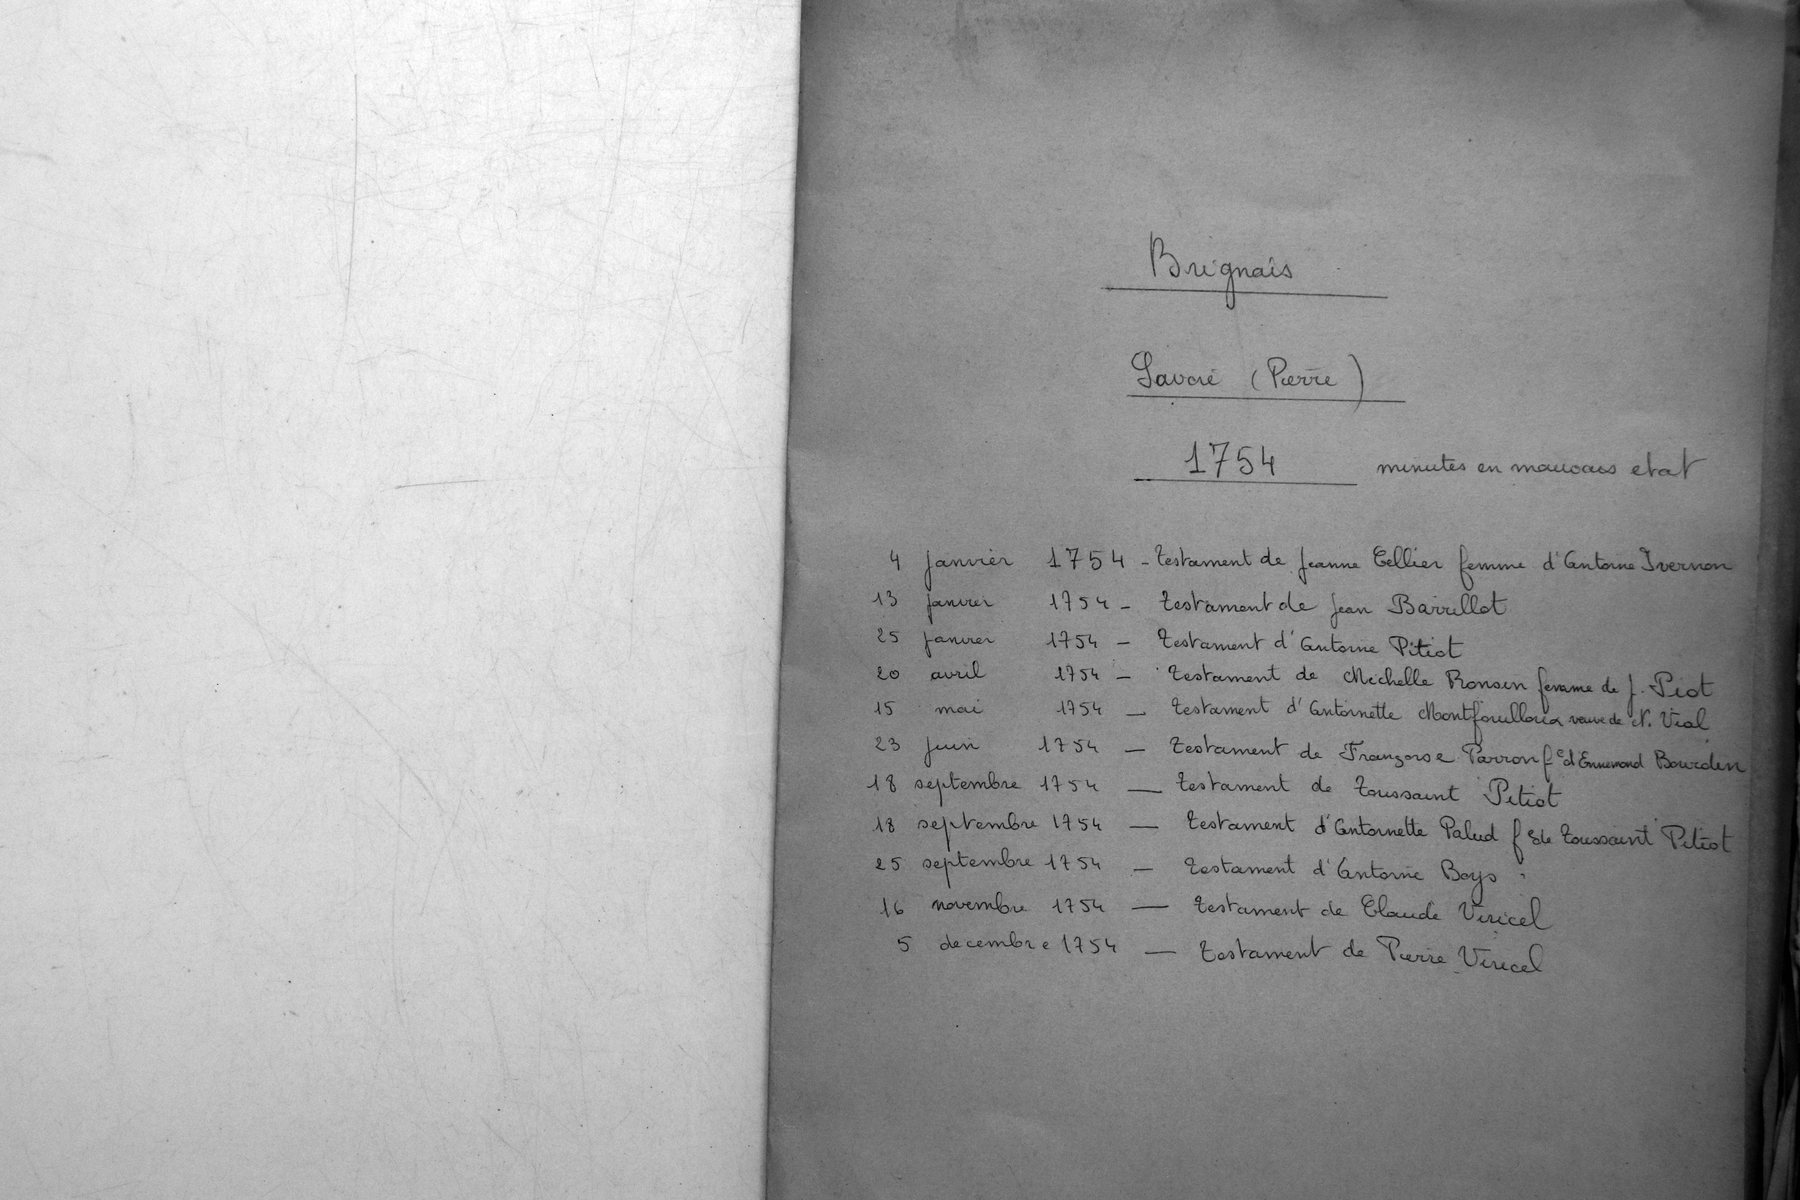 Brignais
Savoie (Pierre)
1754 minutes en mauvais etat
4 janvier 1754 - testament de Jeanne Tellier femme d'Antoine Ivernon
13 janvier 1754 - testament de Jean Barrillot
25 janvier 1754 - testament d'Antoine Pitiot
20 avril 1754 - testament de Michelle Ronsin femme de J. Piot
15 mai 1754 - testament d'Antoinette veuve de N. Vial
23 juin 1754 - testament de Françoise Parron fe d'Ennemond Bourdin
18 septembre 1754 - testament de Toussaint Pitiot
18 septembre 1754 - testament d'Antoinette Palud f de Toussaint Pitiot
25 septembre 1754 - testament d'Antoine Boys
16 novembre 1754 - testament de Claude Viricel
5 decembre 1754 - testament de Pierre Viricel